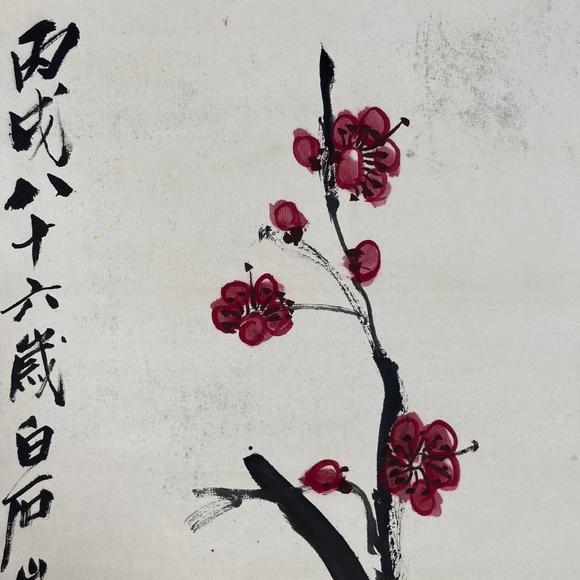 丙戌八十六歲白石